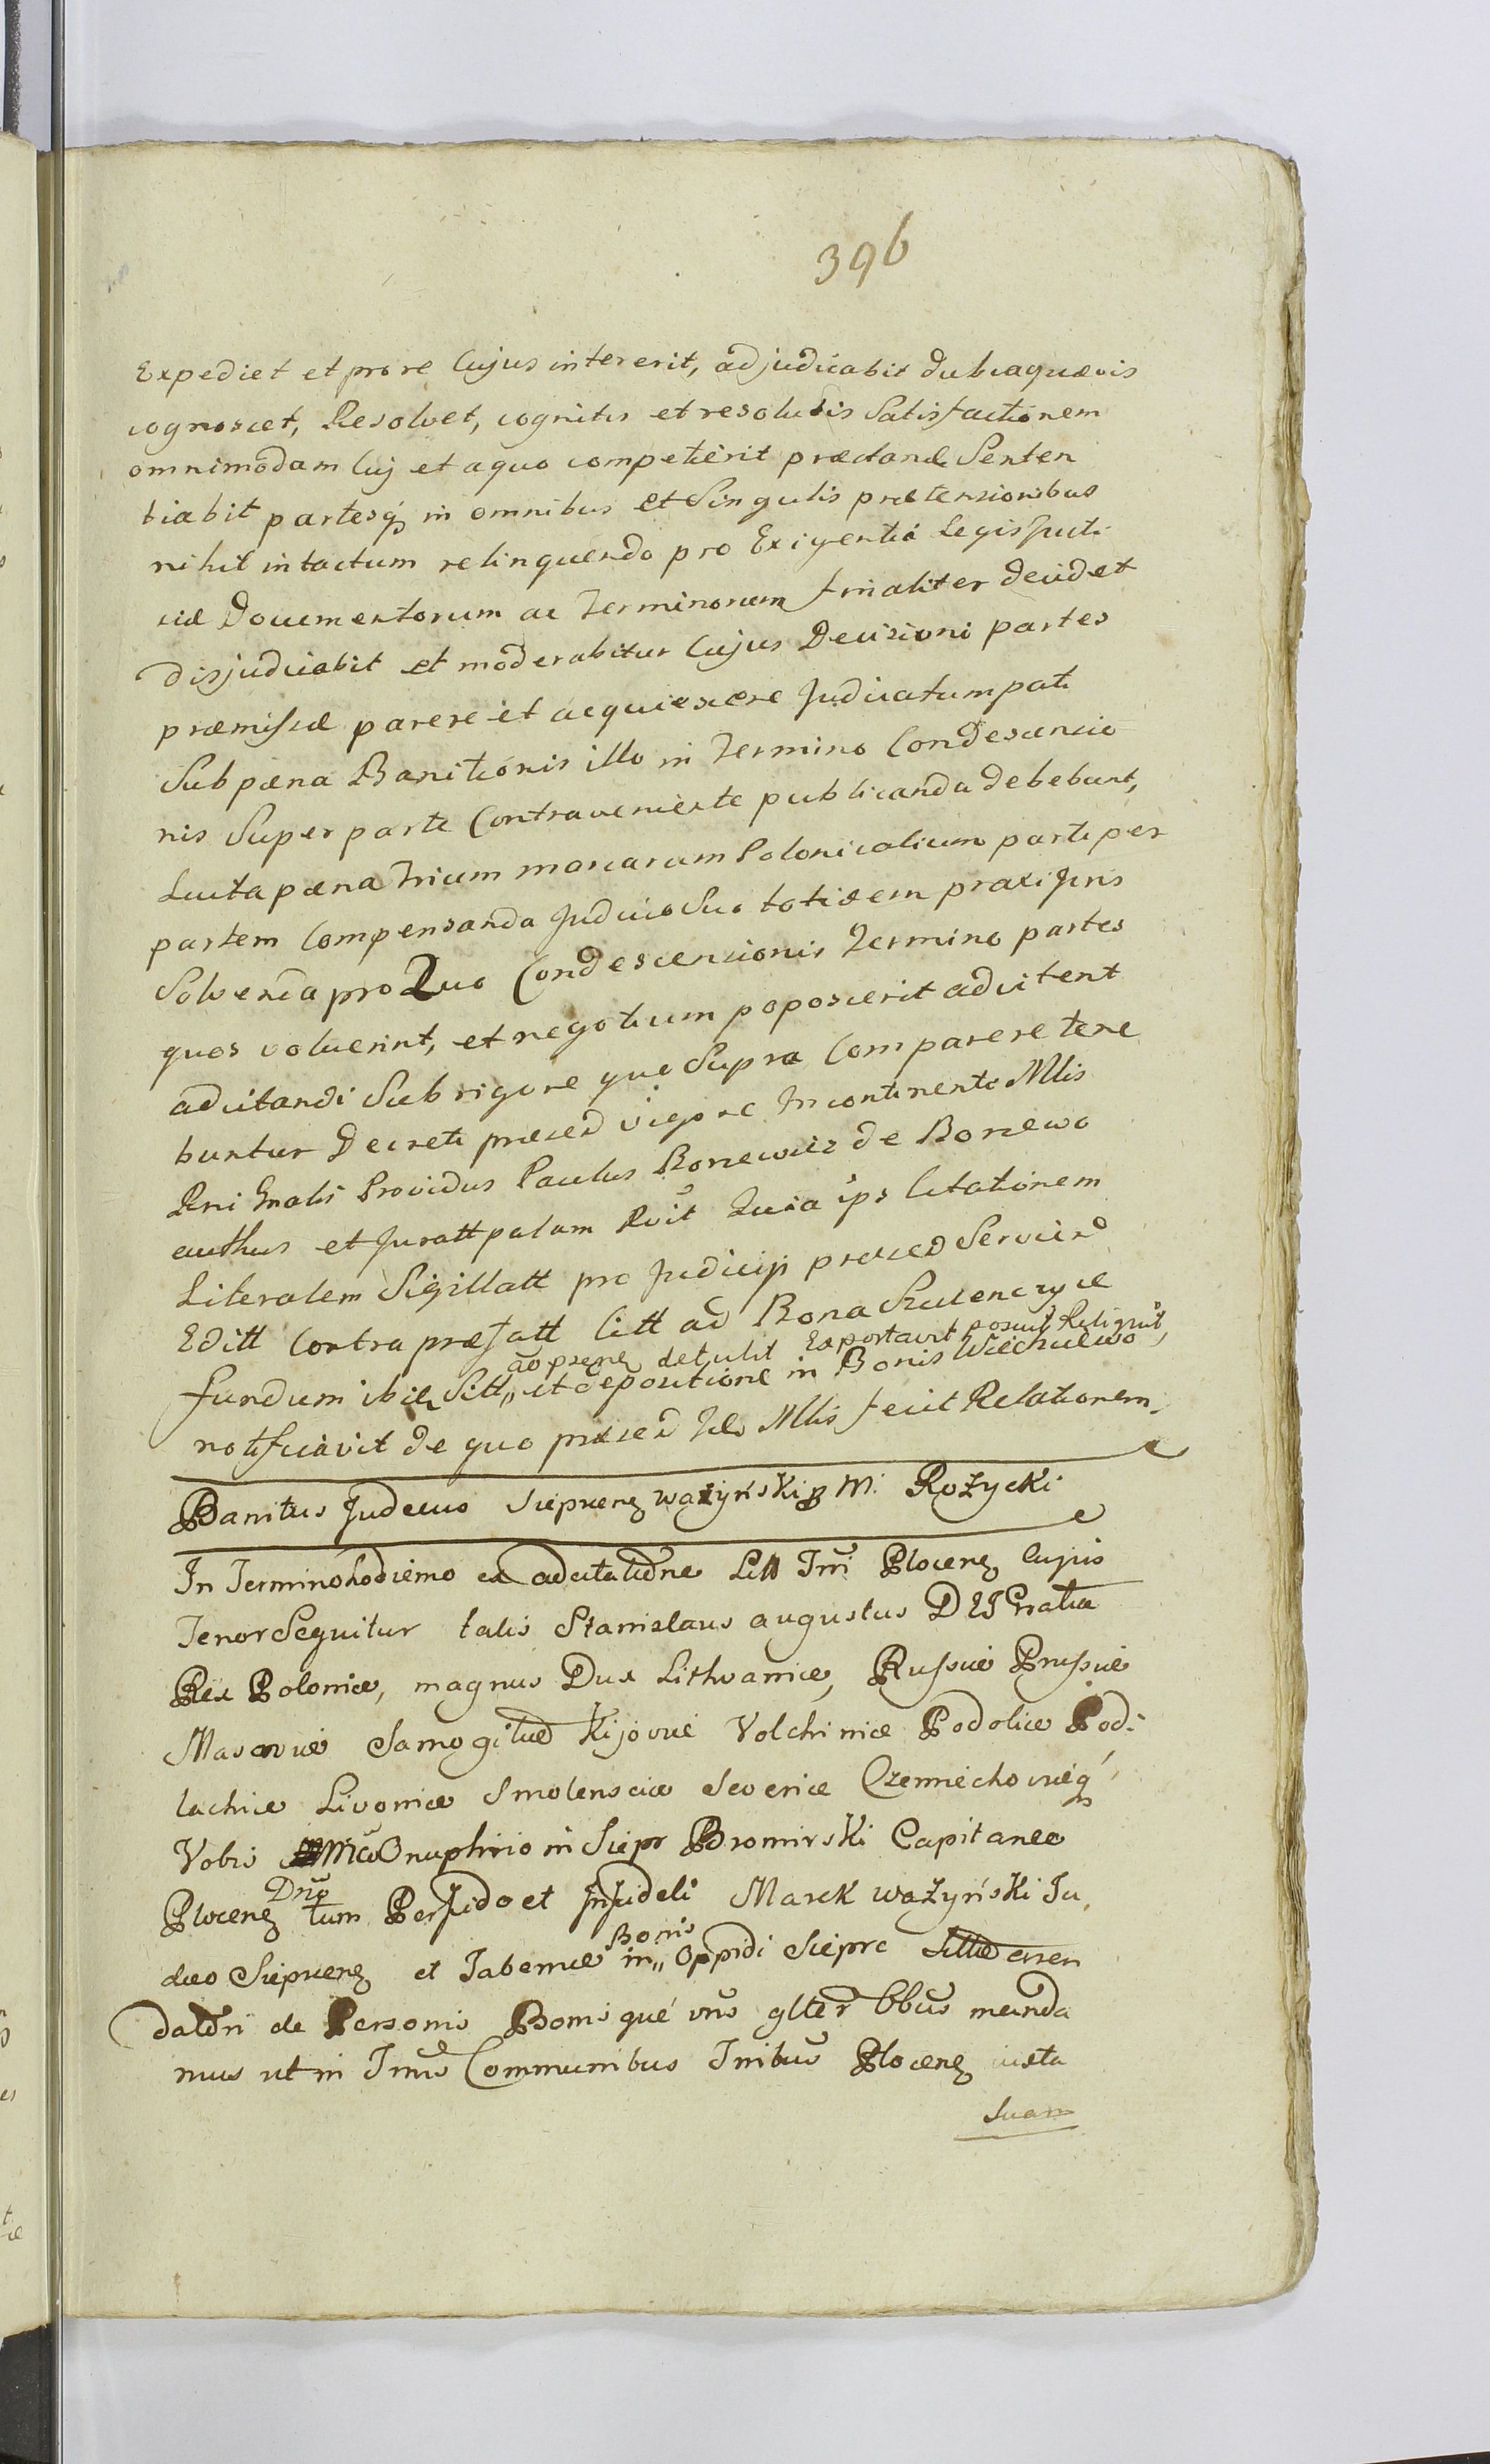 396
Expediet et pro re Cujus intererit, adjudicabit dubiaquævis
cognoscet, Resolvet, cognitis et resolutis Satisfactionem
omnimodam Cuj et a quo competierit præstandæ Senten
tiabit partesq in omnibus et Singulis prætensionibus
nihil intactum relinquendo pro Exigentiâ Legis Justi
ciæ Documentorum ac Terminorum finaliter decidet
disjudicabit et moderabitur Cujus Decisioni partes
præmissæ parere et acquiescere Judicatum pati
Sub pæna Banitionis illo in Termino Condescensio
nis Super parte Contraveniente publicanda debebunt,
Lucta pæna trium marcarum Polonicalium parti per
partem Compensanda Judicio Suo totidem præxi Juris
Solvenda pro Quo Condescensionis Termino partes
quos voluerint, et negotium poposcerit adcitent
adcitandi Sub rigore quo Supra Comparere tene
buntur Decreti præsen vigore In continenti Mlis
Rni Gnalis Providus Paulus Bonewicz de Bonewo
authus et Juratt palam Rvit Quia ips Citationem
Literalem Sigillatt pro Judicijs præsen Servien
Editt Contra præfatt Citt ad Bona Szulenczyce
ad præne detulit Exportavit posuit Reliquit,
fundum ibiq Sitt,, et depositione in Bonis Wiechulewo
notificavit de quo præsen Ido Mlis fecit Relationem.
Banitus Judæus Siepcens Ważyński p M. Rożycki
In Termino hodierno ex adcitatione Litt Trri Plocens Cujus
Tenor Sequitur talis Stanislaus augustus DEI Gratia
Rex Poloniæ, magnus Dux Lithvaniæ, Russiæ Prussiæ
Masoviæ Samogitiæ Kijoviæ Volchiniæ Podoliæ Pod:
lachiæ Livoniæ Smolensciæ Severiæ Czerniechoviæq
Vobis Mco Onuphrio in Siepr Bromirski Capitaneo
Dno
Plocens tum Perfido et Infideli Marek Ważyński Ju,
Bonis
dæo Siepcens et Tabernæ in,, Oppidi Sieprc Sittæ arren
datri de Personis Bonisque vris glter bbus manda
mus ut in Jmis Communibus Tribus Plocens iuxta
Suam